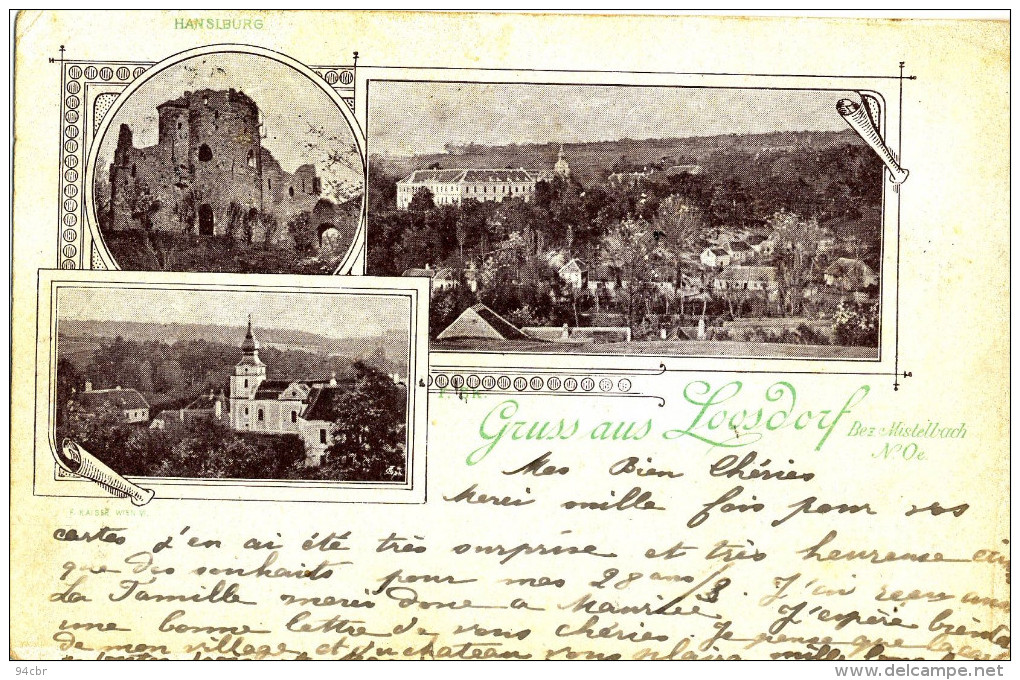 HANSLBURG
Gruss aus Loosdorf
Bez Mistelbach
N.Oe.
F. KAISER, WIEN VI.
Mes Bien Chéries
Merci mille fois pour vos
cartes j'en ai été très surprise et très heureuse
que des souhaits pour mes 28 ans /3. J'ai
La Famille merci donc a Maurice. J'espère
une bonne lettre de vous chéries. Je pense que
de mon village et du chateau vous mille
94cbr
www.delcampe.net